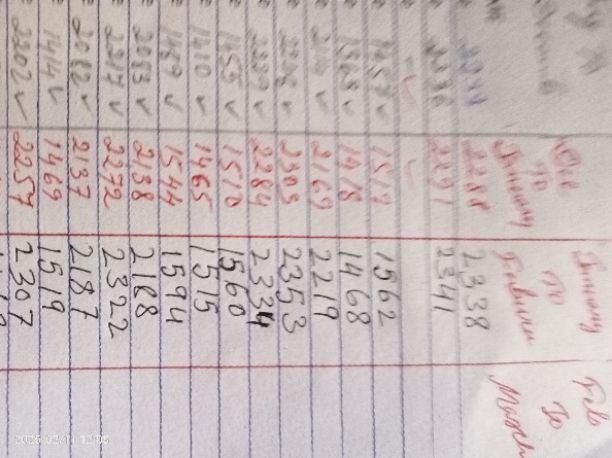 Dec To January January To February Feb To
2288 2338
2236 2291 2341
1457 ✓ 1512 1562
1363 ✓ 1418 1468
2114 ✓ 2169 2219
2248 ✓ 2303 2353
2229 ✓ 2284 2334
1455 ✓ 1510 1560
1410 ✓ 1465 1515
1489 ✓ 1544 1594
2083 ✓ 2138 2188
2217 ✓ 2272 2322
2082 ✓ 2137 2187
1414 ✓ 1469 1519
2202 ✓ 2257 2307